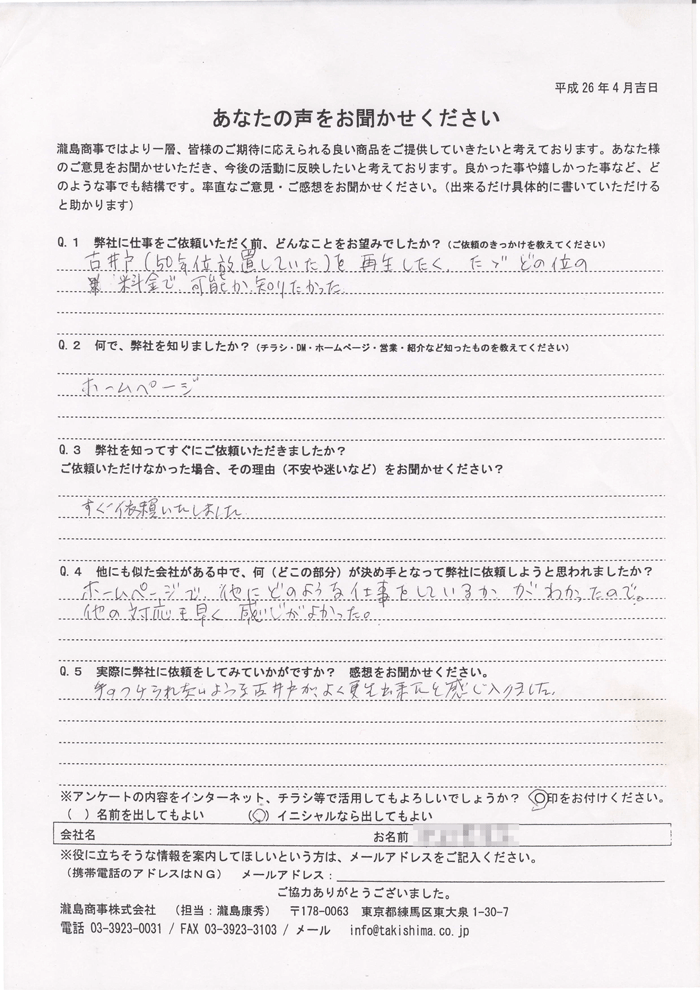 平成26年4月吉日
あなたの声をお聞かせください
瀧島商事ではより一層、皆様のご期待に応えられる良い商品をご提供していきたいと考えております。あなた様
のご意見をお聞かせいただき、今後の活動に反映したいと考えております。良かった事や嬉しかった事など、ど
のような事でも結構です。率直なご意見・ご感想をお聞かせください。（出来るだけ具体的に書いていただける
と助かります）
Q.1 弊社に仕事をご依頼いただく前、どんなことをお望みでしたか？（ご依頼のきっかけを教えてください）
古井戸（50年位放置していた）を再生したく、たゞどの位の
料金で可能か知りたかった
Q.2 何で、弊社を知りましたか？（チラシ・DM・ホームページ・営業・紹介など知ったものを教えてください）
ホームページ
Q.3 弊社を知ってすぐにご依頼いただきましたか？
ご依頼いただけなかった場合、その理由（不安や迷いなど）をお聞かせください？
すぐ依頼いたしました
Q.4 他にも似た会社がある中で、何（どこの部分）が決め手となって弊社に依頼しようと思われましたか？
ホームページで、他にどのような仕事をしているかがわかったので。
他の対応も早く感じがよかった。
Q.5 実際に弊社に依頼をしてみていかがですか？ 感想をお聞かせください。
手のつけられないような古井戸が、よく更生出来たと感じ入りました。
※アンケートの内容をインターネット、チラシ等で活用してもよろしいでしょうか？ ○印をお付けください。
（ ）名前を出してもよい （○）イニシャルなら出してもよい
会社名 お名前
※役に立ちそうな情報を案内してほしいという方は、メールアドレスをご記入ください。
（携帯電話のアドレスはNG） メールアドレス：
ご協力ありがとうございました。
瀧島商事株式会社 （担当：瀧島康秀） 〒178-0063 東京都練馬区東大泉1-30-7
電話 03-3923-0031 / FAX 03-3923-3103 / メール info@takishima.co.jp